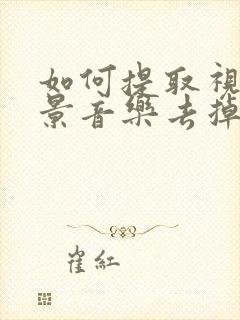 如何提取視
景音樂去掉
崔紅